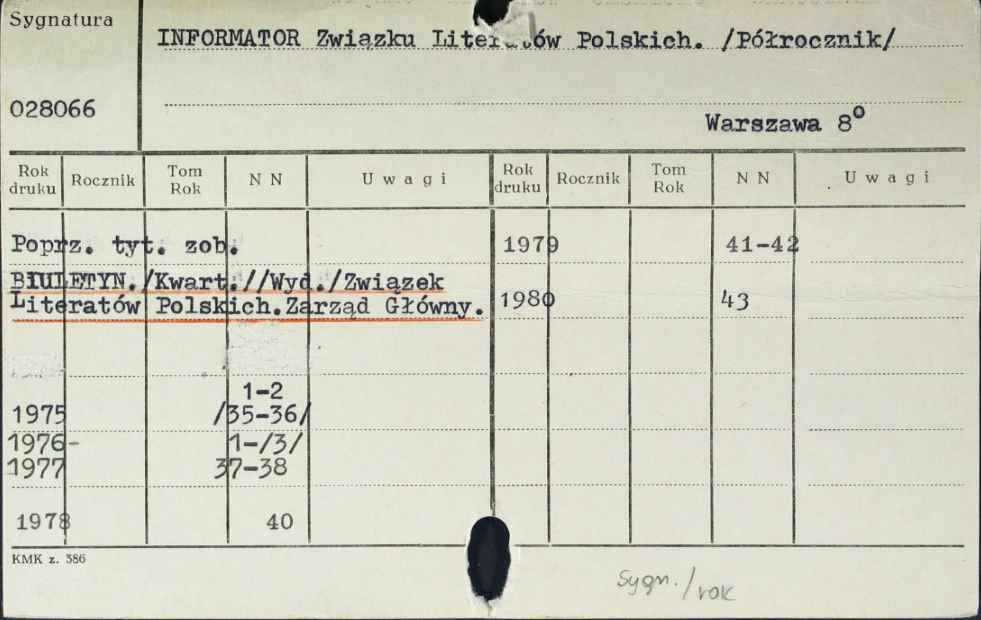 Sygnatura
INFORMATOR Związku Literatów Polskich. /Półrocznik/
028066
Warszawa 8°
Rok druku Rocznik Tom Rok N N Uwagi Rok druku Rocznik Tom Rok N N Uwagi
Poprz. tyt. zob. 1979 41-42
BIULETYN./Kwart.//Wyd./Związek
Literatów Polskich.Zarząd Główny. 1980 43
1-2
1975 /35-36/
1976- 1-/3/
1977 37-38
1978 40
KMK z. 386
Sygn./rok